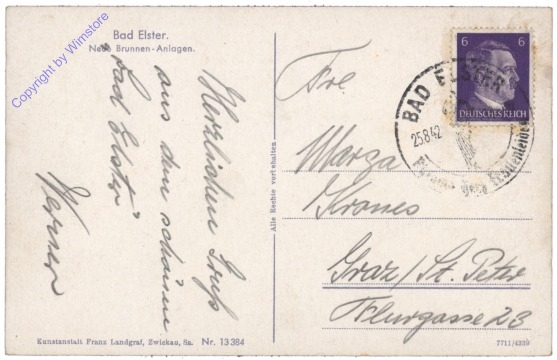 Bad Elster.
Neue Brunnen-Anlagen.
Herzlichen Gruß
aus dem schönen
Bad Elster
Werner
Alle Rechte vorbehalten
Kunstanstalt Franz Landgraf, Zwickau, Sa. Nr. 13384
6 6
DEUTSCHES REICH
BAD ELSTER
25.8.42
Frl.
Marga
Krones
Graz/St. Peter
Flurgasse 23
7711/4339
Copyright by Winstore